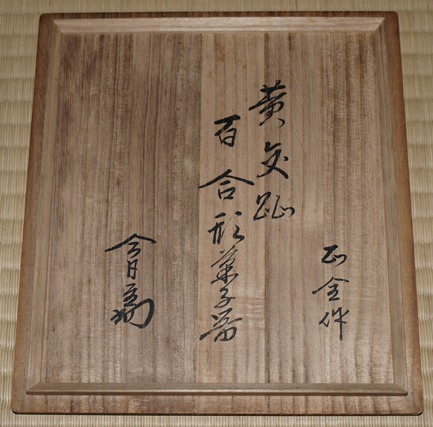 正全作
黄交趾
百合形菓子器
今日庵